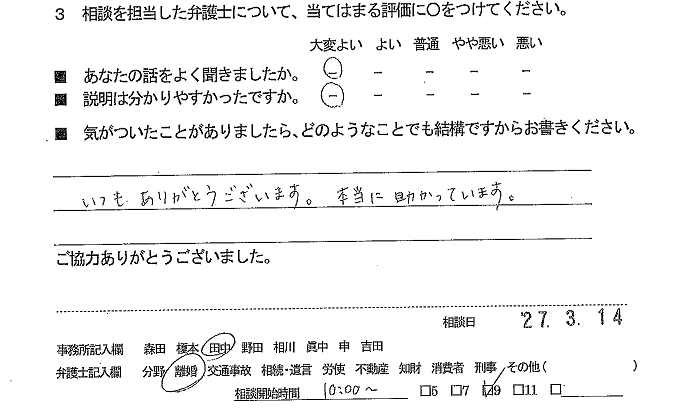 3 相談を担当した弁護士について、当てはまる評価に○をつけてください。
大変よい よい 普通 やや悪い 悪い
■ あなたの話をよく聞きましたか。 － － － － －
■ 説明は分かりやすかったですか。 － － － － －
■ 気がついたことがありましたら、どのようなことでも結構ですからお書きください。
いつも ありがとうございます。 本当に 助かっています。
ご協力ありがとうございました。
相談日 '27. 3. 14
事務所記入欄 森田 榎本 田中 野田 相川 眞中 申 吉田
弁護士記入欄 分野 離婚 交通事故 相続・遺言 労使 不動産 知財 消費者 刑事 その他( )
相談開始時間 10:00〜 □5 □7 □9 □11 □